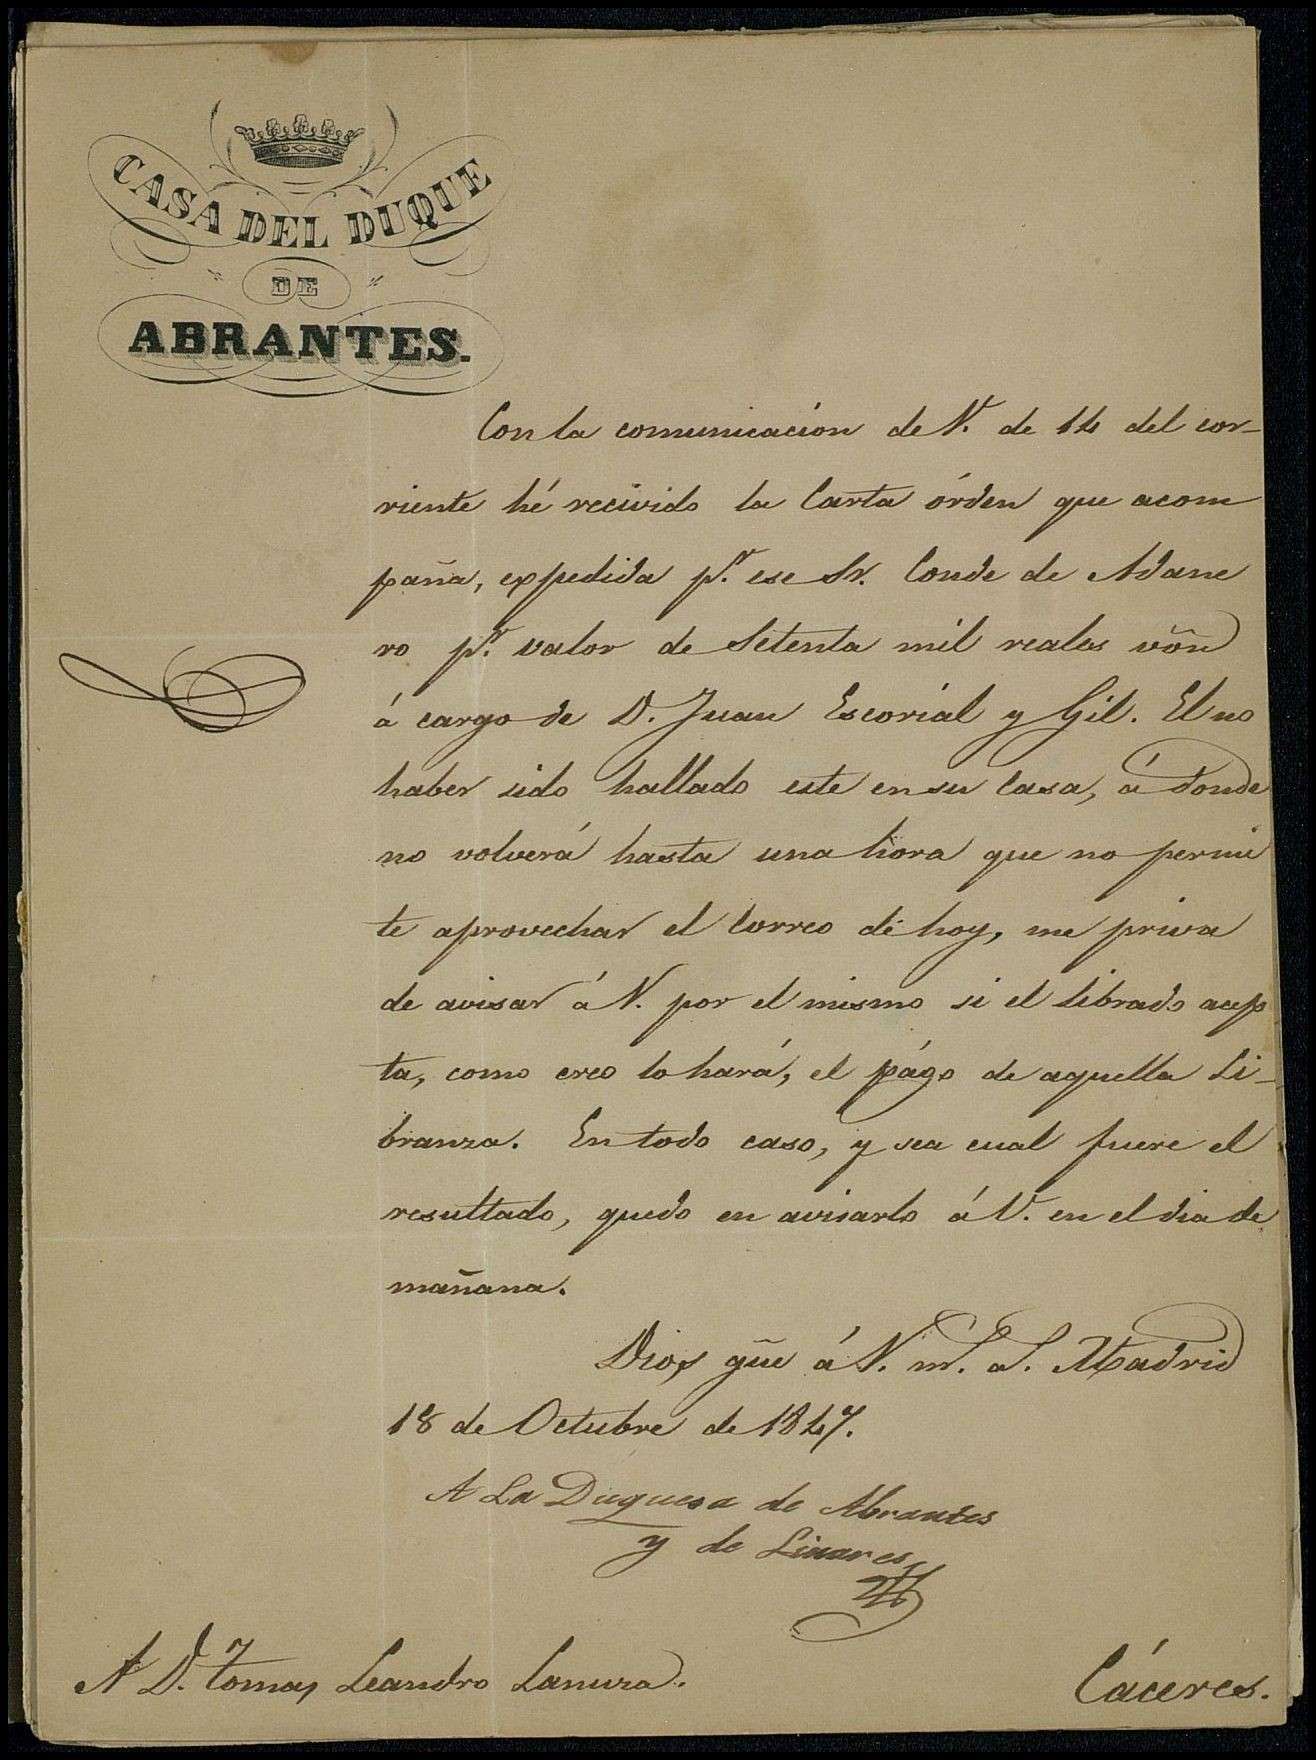 CASA DEL DUQUE
DE
ABRANTES.
Con la comunicación de V. de 14 del cor-
riente hé recivido la Carta órden que acom
paña, expedida p.r ese Sr. Conde de Adane
ro p.r valor de Setenta mil reales võn
á cargo de D. Juan Escorial y Gil. El no
haber sido hallado este en su Casa, á donde
no volverá hasta una hora que no permi
te aprovechar el Correo de hoy, me priva
de avisar á V. por el mismo si el librado acep
ta, como creo lo hará, el págo de aquella Li-
branza. En todo caso, y sea cual fuere el
resultado, quedo en avisarlo á V. en el dia de
mañana.
Dios gũe á V. m.s a.s. Madrid
18 de Octubre de 1847.
A La Duquesa de Abrantes
y de Linares
A D. Tomas Leandro Lanuza.
Cáceres.